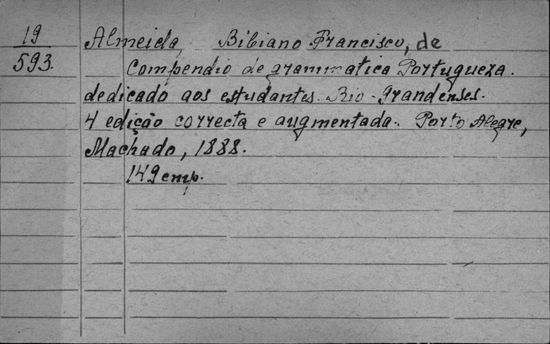 19
593.
Almeida, Bibiano Francisco, de
Compendio de grammatica Portugueza.
dedicado aos estudantes Rio-Grandenses.
4 edição correcta e augmentada. Porto Alegre,
Machado, 1888.
149 emp.